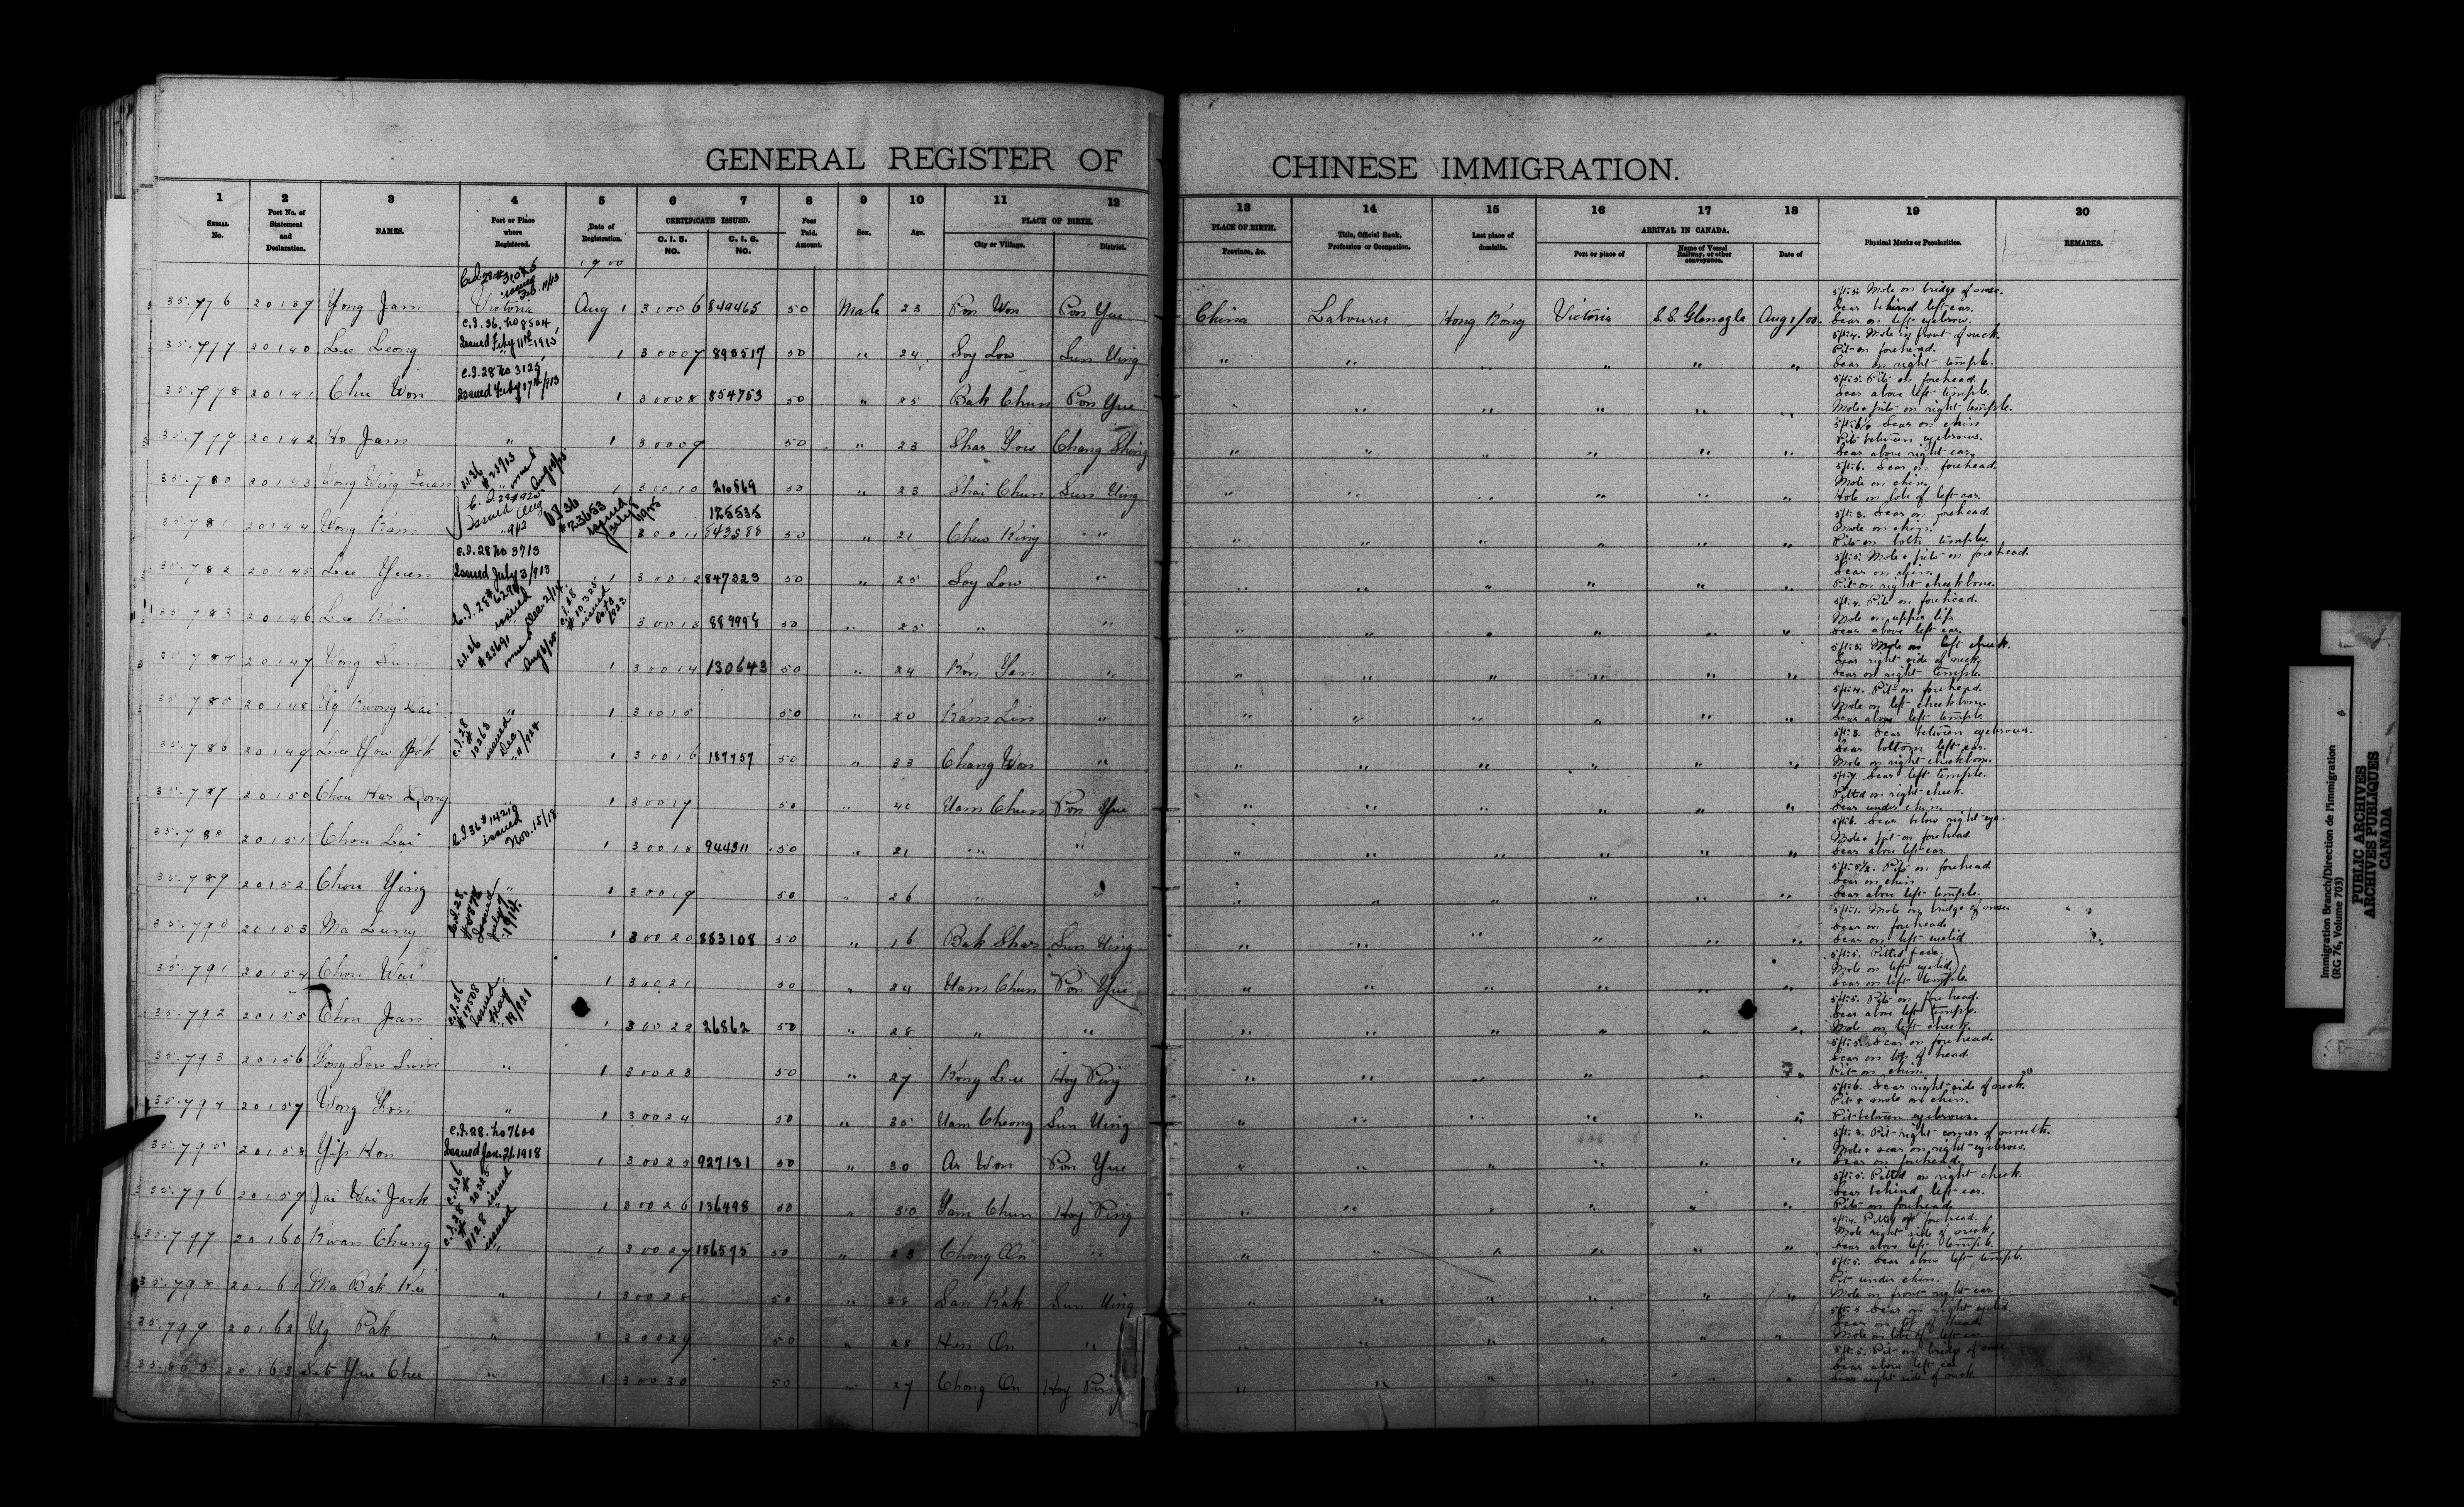 GENERAL REGISTER OF CHINESE IMMIGRATION.
1 2 3 4 5 6 7 8 9 10 11 12 13 14 15 16 17 18 19 20
SERIAL No.
Port No. of Statement and Declaration.
NAMES.
Port or Place where Registered.
Date of Registration.
CERTIFICATE ISSUED.
C. I. 5. NO.
C. I. 6. NO.
Fees Paid. Amount.
Sex.
Age.
PLACE OF BIRTH.
City or Village.
District.
PLACE OF BIRTH.
Province, &c.
Title, Official Rank, Profession or Occupation.
Last place of domicile.
ARRIVAL IN CANADA.
Port or place of
Name of Vessel Railway, or other conveyance.
Date of
Physical Marks or Pecularities.
REMARKS.
1900
35.776 20139 Yong Jam Victoria Aug 1 30006 849465 50 Male 23 Pon Won Pon Yue China Labourer Hong Kong Victoria S.S. Glenogle Aug 1/00. 5ft 5. Mole on bridge of nose.
Scar behind left ear.
Scar on left eyebrow.
C.I. 36. No 8504, Issued Feby 11th 1915
35.777 20140 Lee Leong " 1 30007 893517 50 " 24 Soy Low Sun Ning " " " " " " 5ft 4. Mole in front of neck.
Pit on forehead.
Scar on right temple.
C.I. 28 No 3125, Issued Feby 17th/913
35.778 20141 Chu Won 1 30008 854753 50 " 25 Bak Chun Pon Yue " " " " " " 5ft 5. Pits on forehead.
Scar above left temple.
Mole & pits on right temple.
35.779 20142 Ho Jam " 1 30009 50 " 23 Shar Yow Chang Shing " " " " " " Scar on chin
Pits between eyebrows.
Scar above right ear.
35.780 20143 Wong Wing 1 30010 210869 50 " 23 Shai Chun Sun Ning " " " " " " 5ft 6. Scar on forehead.
Mole on chin.
Hole on lobe of left ear.
35.781 20144 Wong Kam 30011 125535 843588 50 " 21 Chew King " " " " " " " 5ft 3. Scar on forehead
Mole on chin.
Pits on both temples.
C.I. 28 No 3713 Issued July 3/913
35.782 20145 Lee Yuen 1 30012 847323 50 " 25 Soy Low " " " " " " " 5ft 5. Mole & pits on forehead.
Scar on chin.
Pit on right cheekbone.
35.783 20146 Lee Kin 30013 889998 50 " 25 " " " " " " " " 5ft 4. Pits on forehead.
Mole on upper lip.
Scar above left ear.
35.784 20147 Wong Sum 1 30014 130643 50 " 24 Kon Yan " " " " " " " 5ft 5. Mole on left cheek.
Scar right side of neck.
Scar on right temple.
35.785 20148 Ng Kwong Dai " 1 30015 50 " 20 Kam Lin " " " " " " " 5ft 4. Pit on forehead.
Mole on left cheekbone.
Scar above left temple.
C.I. 28 # 12263 issued Dec 11/924
35.786 20149 Lee Yow 1 30016 187757 50 " 33 Chang Won " " " " " " " 5ft 3. Scar between eyebrows.
Scar bottom left ear.
Mole on right cheekbone.
35.787 20150 Chou Har Dong 1 30017 50 " 40 Nam Chun Pon Yue " " " " " " 5ft 7. Scar left temple.
Pitted on right cheek.
Scar under chin.
issued Nov. 15/18
35.788 20151 Chou Lai 1 30018 944311 50 " 21 " " " " " " " " 5ft 6. Scar below right eye.
Mole & pit on forehead.
Scar above left ear.
35.789 20152 Chou Ying " 1 30019 50 " 26 " " " " " " " " 5ft 5½. Pits on forehead
Scar on chin.
Scar above left temple.
35.790 20153 Ma Lung 1 30020 883108 50 " 16 Bak Shar Sun Ning " " " " " " 5ft 1. Mole on bridge of nose.
Scar on forehead.
Scar on left eyelid
35.791 20154 Chou Wai " 1 30021 50 " 24 Nam Chun Pon Yue " " " " " " 5ft 5. Pitted face.
Mole on left eyelid.
Scar on left temple.
C.I. 36 # 17508 Issued May 19/921
35.792 20155 Chou Jan 1 30022 26862 50 " 28 " " " " " " " " 5ft 5. Pits on forehead.
Scar above left temple.
Mole on left cheek.
35.793 20156 1 30023 50 " 27 Kong Lee Hoy Ping " " " " " " 5ft 5. Scar on forehead.
Scar on top of head.
Pit on chin.
35.794 20157 Wong Kon " 1 30024 50 " 35 Nam Cheong Sun Ning " " " " " " 5ft 6. Scar right side of neck.
Pit & mole on chin.
Pit between eyebrows.
C.I. 28. No 7600 Issued Jan. 21. 1918
35.795 20158 Yip Hon 1 30025 927131 50 " 30 Ar Won Pon Yue " " " " " " 5ft 3. Pit right corner of mouth.
Mole & scar on right eyebrow.
Scar on forehead.
C.I. 36 # 20325 issued
35.796 20159 Jai Wai Jack 1 30026 136498 50 " 50 Yam Chun Hoy Ping " " " " " " 5ft 5. Pitted on right cheek.
Scar behind left ear.
Pits on forehead.
C.I. 28 # 11128 issued
35.797 20160 Kwan Chung 1 30027 156575 50 " 23 Chong On " " " " " " " 5ft 4. Pitted on forehead.
Mole right side of neck.
Scar above left temple.
35.798 20161 Ma Bak Kee " 1 30028 50 " 28 San Kak Sun Ning " " " " " " 5ft 5. Scar above left temple.
Pit under chin.
Mole in front right ear.
35.799 20162 Ng Pak " 1 30029 50 " 28 Hen On " " " " " " " 5ft 5 Scar on right eyelid.
Scar on top of head
Mole on lobe of left ear.
35.800 20163 Set Yue Chee " 1 30030 50 " 27 Chong On Hoy Ping " " " " " " 5ft 5. Pit on bridge of nose
Scar above left ear.
Scar right side of neck.
Immigration Branch/Direction de l'immigration
(RG 76, Volume 703)
PUBLIC ARCHIVES
ARCHIVES PUBLIQUES
CANADA